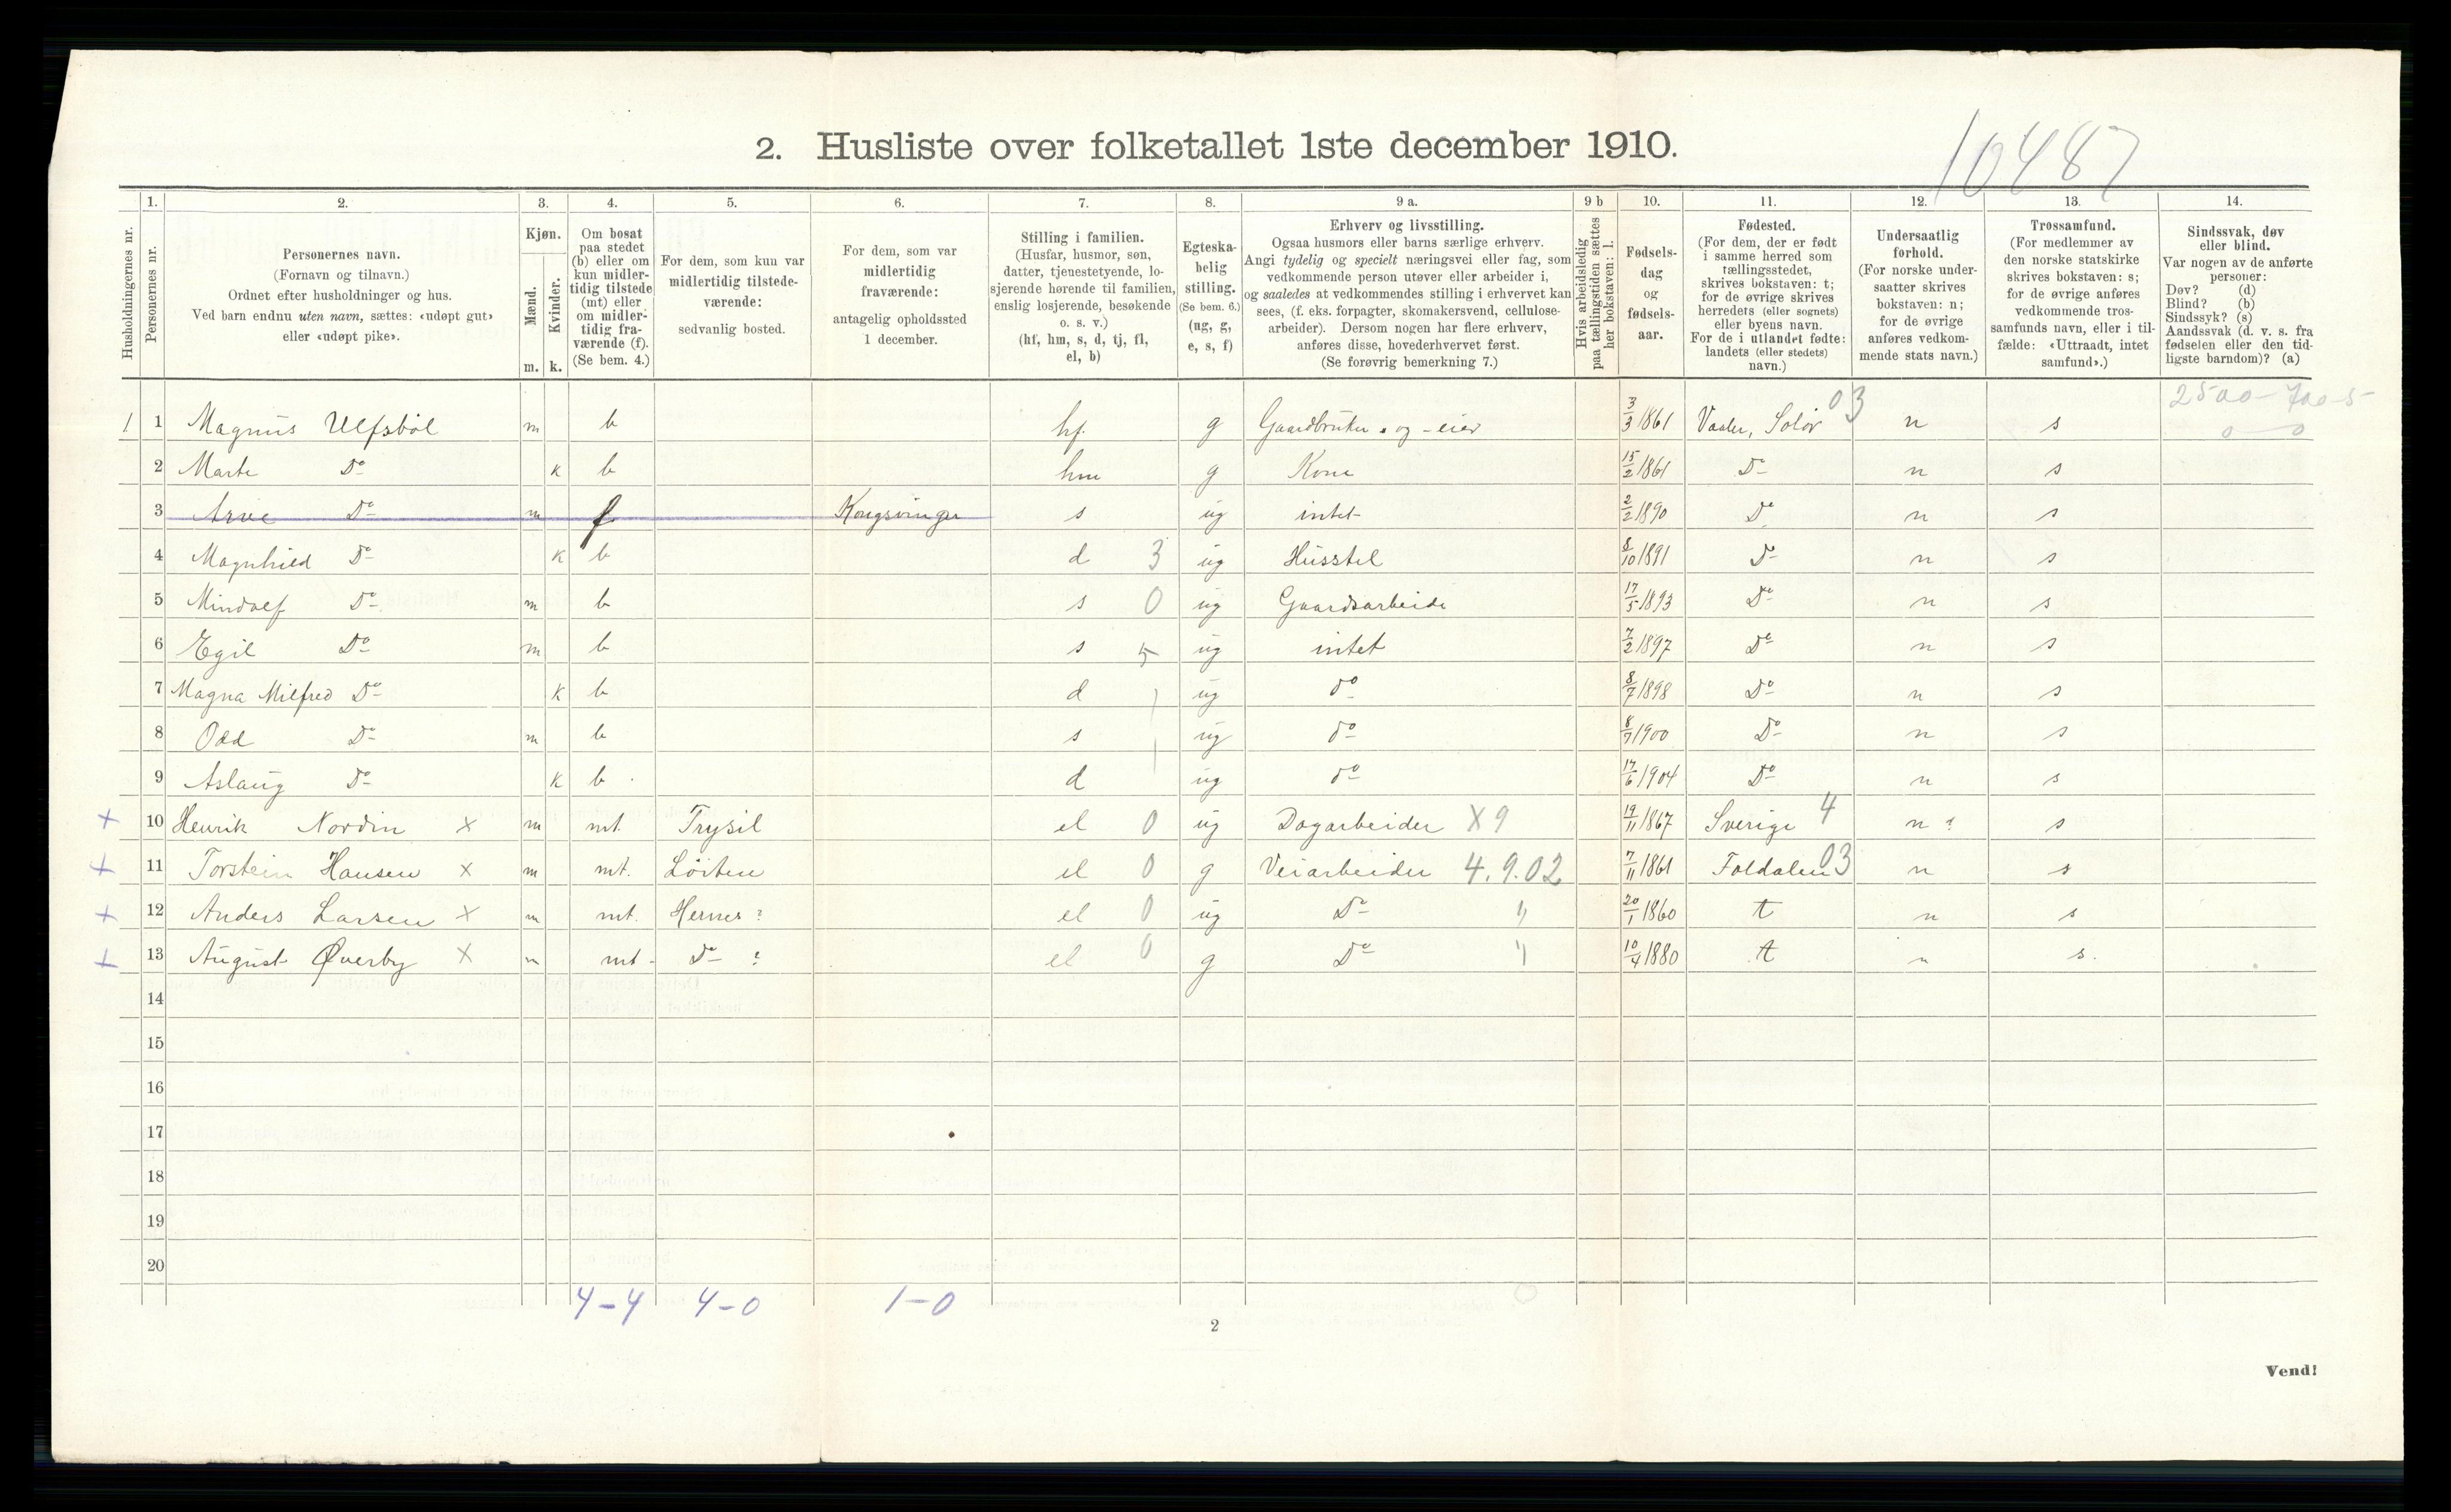 10487
2. Husliste over folketallet 1ste december 1910.
Husholdningernes nr.
1. Personernes nr.
2. Personernes navn.
(Fornavn og tilnavn.)
Ordnet efter husholdninger og hus.
Ved barn endnu uten navn, sættes: «udøpt gut»
eller «udøpt pike».
3. Kjøn.
Mænd. Kvinder.
m. k.
4. Om bosat
paa stedet
(b) eller om
kun midler-
tidig tilstede
(mt) eller
om midler-
tidig fra-
værende (f).
(Se bem. 4.)
5. For dem, som kun var
midlertidig tilstede-
værende:
sedvanlig bosted.
6. For dem, som var
midlertidig
fraværende:
antagelig opholdssted
1 december.
7. Stilling i familien.
(Husfar, husmor, søn,
datter, tjenestetyende, lo-
sjerende hørende til familien,
enslig losjerende, besøkende
o. s. v.)
(hf, hm, s, d, tj, fl,
el, b)
8. Egteska-
belig
stilling.
(Se bem. 6.)
(ug, g,
e, s, f)
9 a. Erhverv og livsstilling.
Ogsaa husmors eller barns særlige erhverv.
Angi tydelig og specielt næringsvei eller fag, som
vedkommende person utøver eller arbeider i,
og saaledes at vedkommendes stilling i erhvervet kan
sees, (f. eks. forpagter, skomakersvend, cellulose-
arbeider). Dersom nogen har flere erhverv,
anføres disse, hovederhvervet først.
(Se forøvrig bemerkning 7.)
9 b Hvis arbeidsledig
paa tællingstiden sættes
her bokstaven: l.
10. Fødsels-
dag
og
fødsels-
aar.
11. Fødested.
(For dem, der er født
i samme herred som
tællingsstedet,
skrives bokstaven: t;
for de øvrige skrives
herredets (eller sognets)
eller byens navn.
For de i utlandet fødte:
landets (eller stedets)
navn.)
12. Undersaatlig
forhold.
(For norske under-
saatter skrives
bokstaven: n;
for de øvrige
anføres vedkom-
mende stats navn.)
13. Trossamfund.
(For medlemmer av
den norske statskirke
skrives bokstaven: s;
for de øvrige anføres
vedkommende tros-
samfunds navn, eller i til-
fælde: «Uttraadt, intet
samfund».)
14. Sindssvak, døv
eller blind.
Var nogen av de anførte
personer:
Døv? (d)
Blind? (b)
Sindssyk? (s)
Aandssvak (d. v. s. fra
fødselen eller den tid-
ligste barndom)? (a)
1 1 Magnus Ulfsböl m b hf. g Gaardbruker og -eier 3/3 1861 Vaaler, Solör 03 n s 2500-700-5 0 0
2 Marte Do k b hm g Kone 15/2 1861 Do n s
3 Arve Do m f Kongsvinger s ug intet 2/2 1890 Do n s
4 Magnhild Do k b d 3 ug Husstel 8/10 1891 Do n s
5 Mindolf Do m b s 0 ug Gaardsarbeide 17/5 1893 Do n s
6 Egil Do m b s 5 ug intet 7/2 1897 Do n s
7 Magna Milfred Do k b d ug do 8/7 1898 Do n s
8 Odd Do m b s ug do 8/7 1900 Do n s
9 Aslaug Do k b d ug do 17/6 1904 Do n s
+ 10 Henrik Nordin x m mt. Trysil el 0 ug Dagarbeider X9 19/11 1867 Sverige 4 n ? s
+ 11 Torstein Hansen x m mt. Löiten el 0 g Veiarbeider 4.9.02 7/11 1861 Foldalen 03 n s
+ 12 Anders Larsen x m mt. Hernes ? el 0 ug Do " 20/1 1860 t n s
+ 13 August Øverby x m mt. Do ? el 0 g Do " 10/4 1880 t n s.
14
15
16
17
18
19
20
4-4 4-0 1-0
2
Vend!